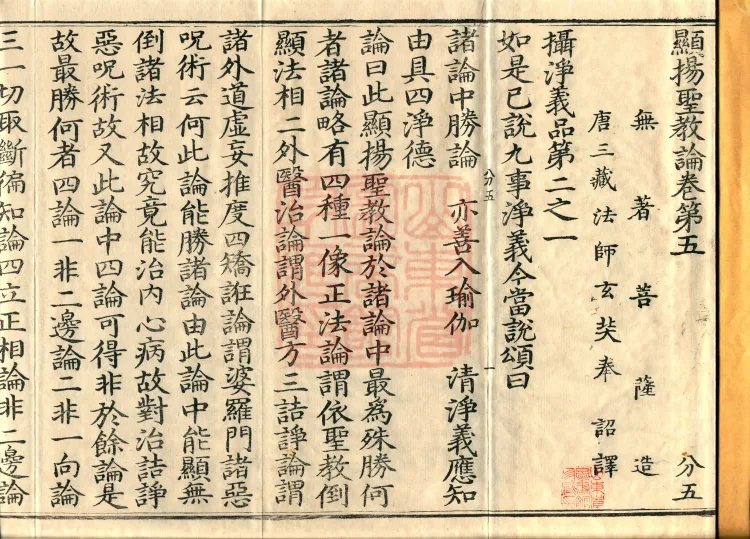 顯揚聖教論卷第五 分五
無著菩薩造
唐三藏法師玄奘奉 詔譯
攝淨義品第二之一
如是已說九事淨義今當說頌曰
諸論中勝論 亦善入瑜伽 清淨義應知
由具四淨德
論曰此顯揚聖教論於諸論中最為殊勝何
者諸論略有四種一像正法論謂依聖教倒
顯法相二外醫治論謂外醫方三詰諍論謂
諸外道虛妄推度四矯誑論謂婆羅門諸惡
呪術云何此論能勝諸論由此論中能顯無
倒諸法相故究竟能治內心病故對治詰諍
惡呪術故又此論中四論可得非於餘論是
故最勝何者四論一非二邊論二非一向論
三一切取斷徧知論四立正相論非二邊論
分五 一